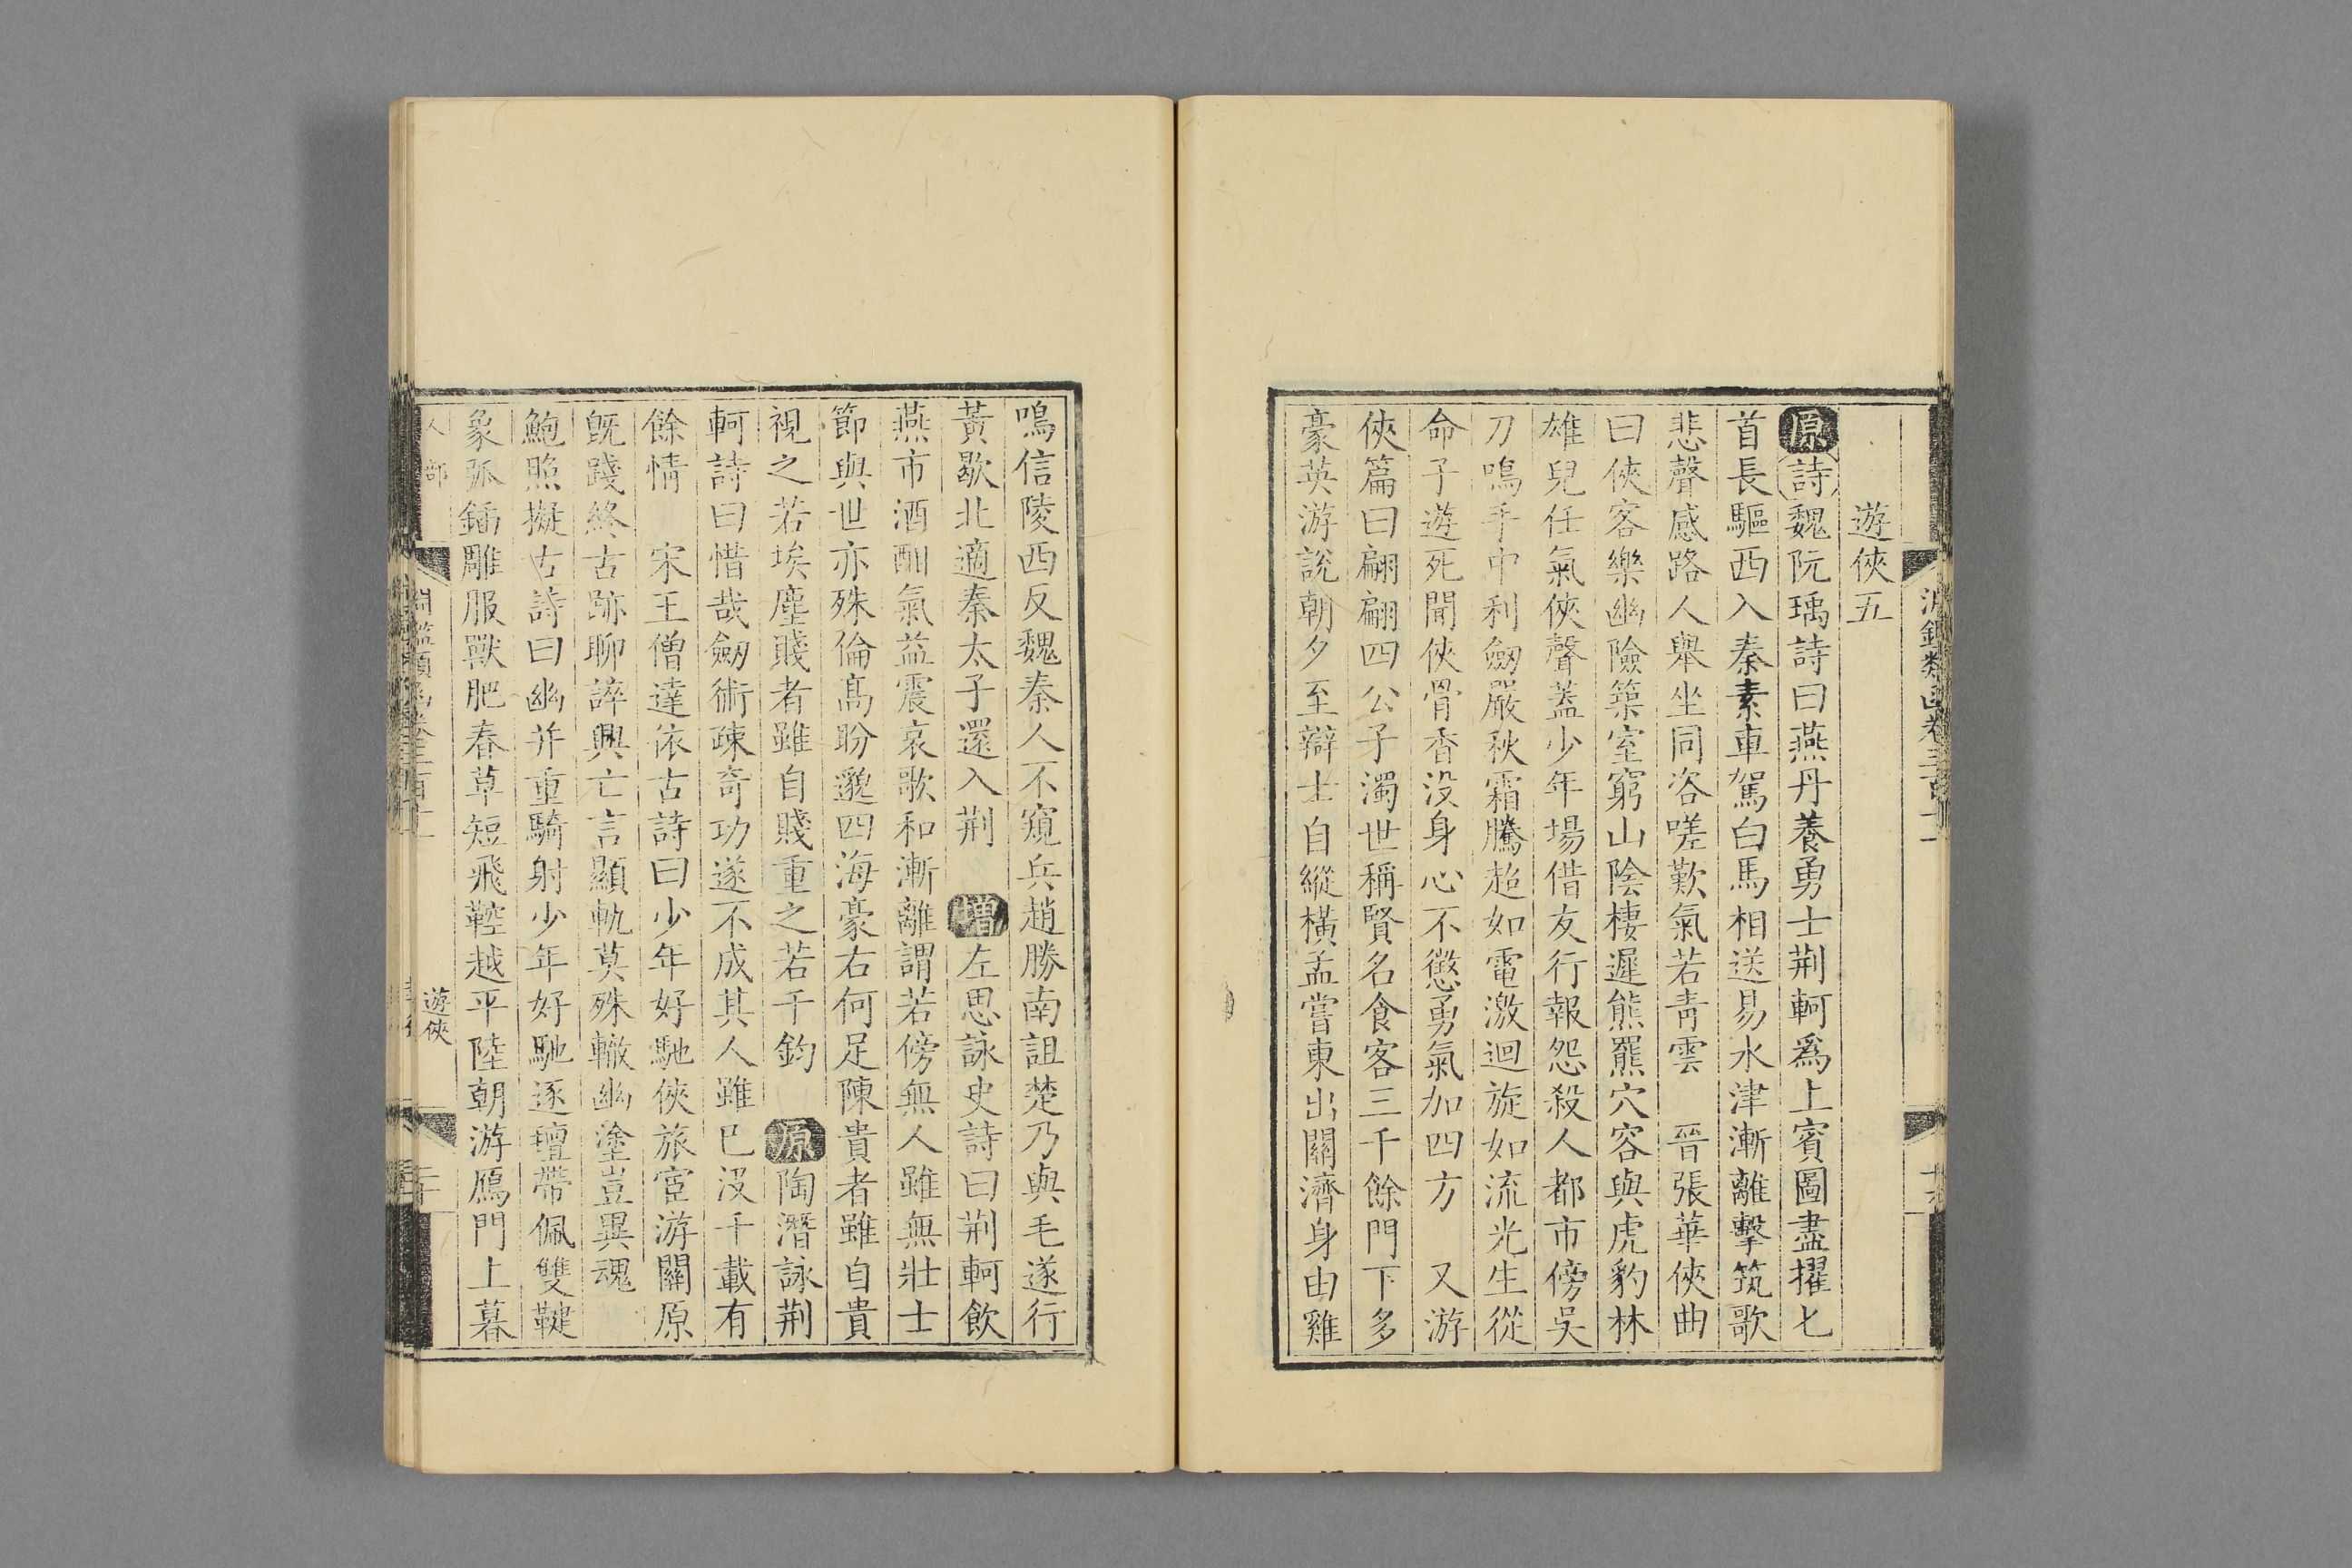 遊俠五
原詩魏阮瑀詩曰燕丹養勇士荆軻爲上賓圖盡擢匕
首長驅西入秦素車駕白馬相送易水津漸離擊筑歌
悲聲感路人舉坐同咨嗟歎氣若靑雲　晉張華俠曲
曰俠客樂幽險築室窮山陰棲遲熊羆穴容與虎豹林
雄兒任氣俠聲蓋少年場借友行報怨殺人都市傍吳
刀鳴手中利劒嚴秋霜騰超如電激迴旋如流光生從
命子遊死聞俠骨香没身心不懲勇氣加四方　又游
俠篇曰翩翩四公子濁世稱賢名食客三千餘門下多
豪英游說朝夕至辯士自縱橫孟嘗東出關濟身由雞
鳴信陵西反魏秦人不窺兵趙勝南詛楚乃與毛遂行
黃歇北適秦太子還入荆　增左思詠史詩曰荆軻飮
燕市酒酣氣益震哀歌和漸離謂若傍無人雖無壯士
節與世亦殊倫高盼邈四海豪右何足陳貴者雖自貴
視之若埃塵賤者雖自賤重之若千鈞　原陶潛詠荆
軻詩曰惜哉劒術疎奇功遂不成其人雖已没千載有
餘情　宋王僧達依古詩曰少年好馳俠旅宦游關原
旣踐終古跡聊誶興亡言顯軌莫殊轍幽塗豈異魂
鮑照擬古詩曰幽幷重騎射少年好馳逐氊帶佩雙鞬
象弧鏽雕服獸肥春草短飛鞚越平陸朝游鴈門上暮
人部
遊俠